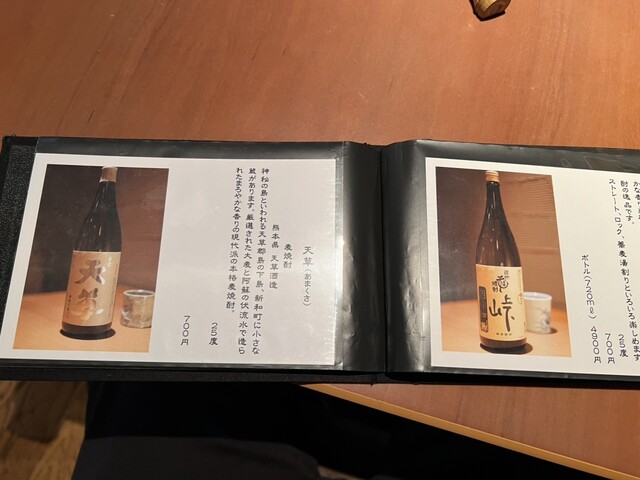 かな香り
酎の逸品です。
ストレート、ロック、蕎麦湯割りといろいろ楽しめます
25度
700円
ボトル(720ml) 4900円
峠
天草(あまくさ)
麦焼酎
熊本県 天草酒造
神秘の島といわれる天草群島の下島、新和町に小さな
蔵があります。厳選された大麦と阿蘇の伏流水で造ら
れたまろやかな香りの現代派の本格麦焼酎。
25度
700円
天草